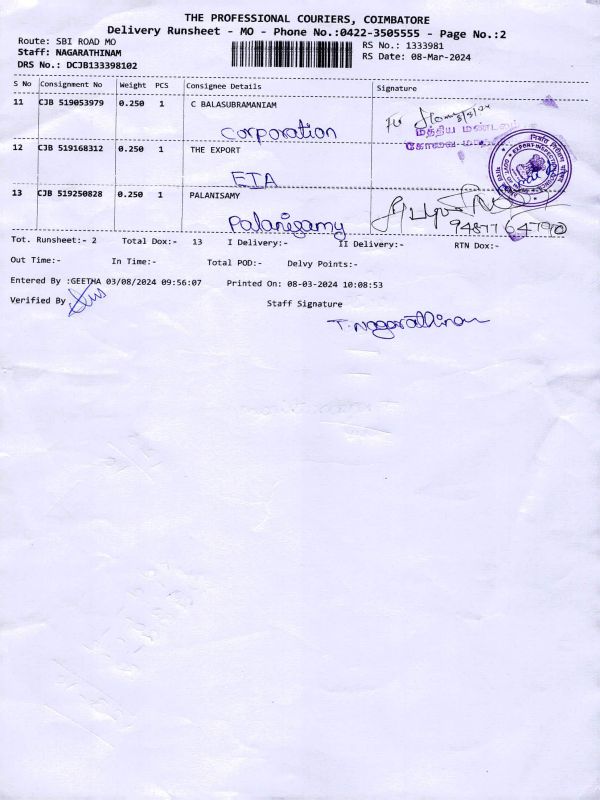 THE PROFESSIONAL COURIERS, COIMBATORE
Delivery Runsheet - MO - Phone No.:0422-3505555 - Page No.:2
Route: SBI ROAD MO RS No.: 1333981
Staff: NAGARATHINAM RS Date: 08-Mar-2024
DRS No.: DCJB133398102
S No Consignment No Weight PCS Consignee Details Signature
11 CJB 519053979 0.250 1 C BALASUBRAMANIAM
மத்திய மண்டலம்
Corporation
12 CJB 519168312 0.250 1 THE EXPORT
EIA
13 CJB 519250828 0.250 1 PALANISAMY
Palanisamy 9487764790
Tot. Runsheet:- 2 Total Dox:- 13 I Delivery:- II Delivery:- RTN Dox:-
Out Time:- In Time:- Total POD:- Delvy Points:-
Entered By :GEETHA 03/08/2024 09:56:07 Printed On: 08-03-2024 10:08:53
Verified By
Staff Signature
T. Nagarathinam